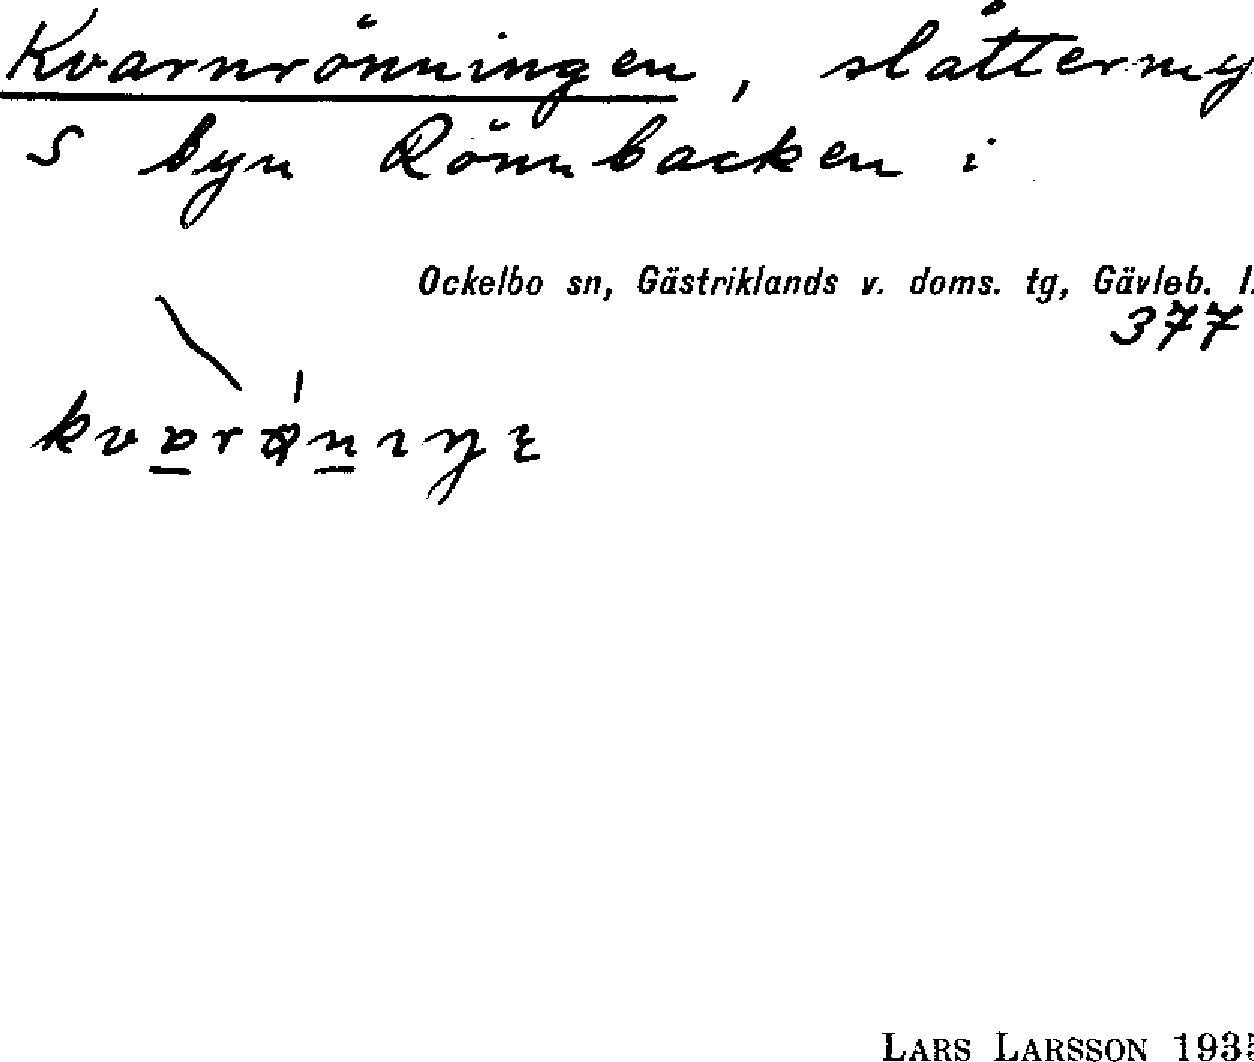 Kvarnrönningen, slåttermy
S byn Rönnbacken i
Ockelbo sn, Gästriklands v. doms. tg, Gävleb. l.
377
LARS LARSSON 1935